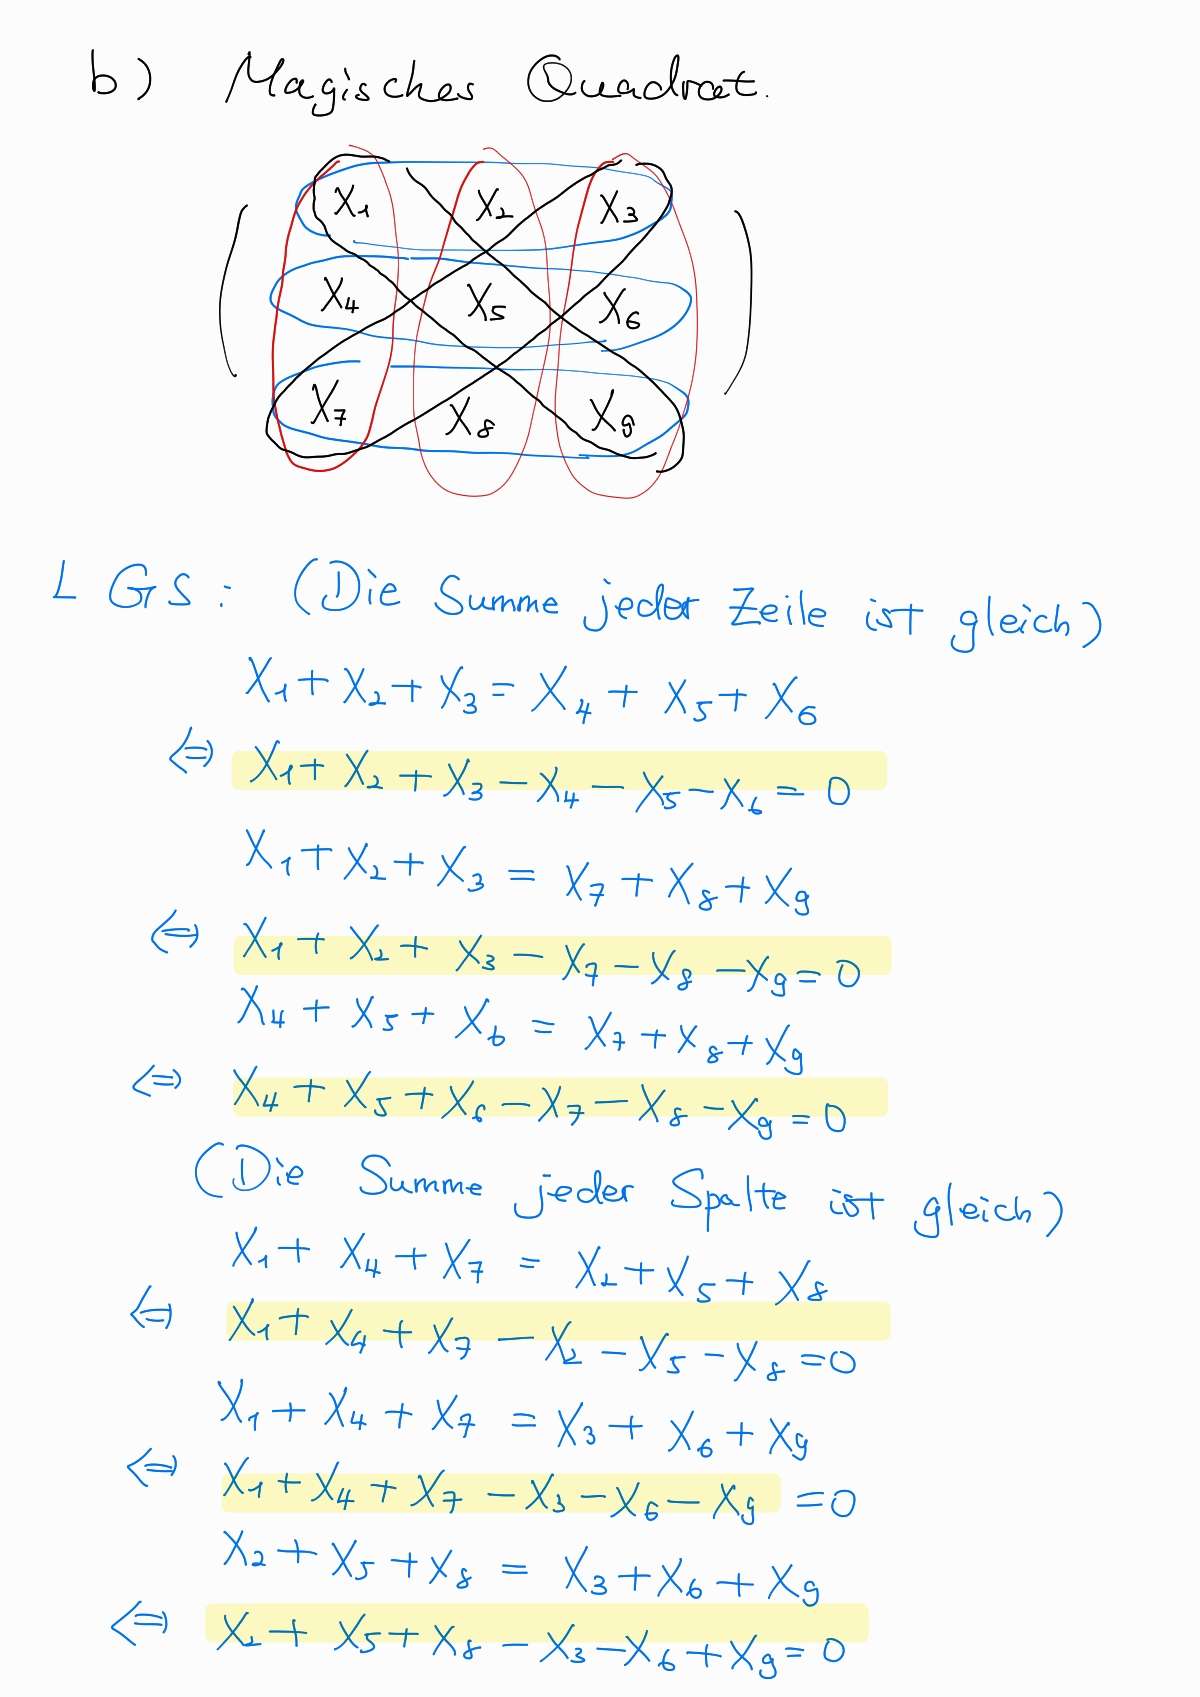 b) Magisches Quadrat.
X₁ X₂ X₃
X₄ X₅ X₆
X₇ X₈ X₉
LGS: (Die Summe jeder Zeile ist gleich)
X₁ + X₂ + X₃ = X₄ + X₅ + X₆
⇔ X₁ + X₂ + X₃ − X₄ − X₅ − X₆ = 0
X₁ + X₂ + X₃ = X₇ + X₈ + X₉
⇔ X₁ + X₂ + X₃ − X₇ − X₈ − X₉ = 0
X₄ + X₅ + X₆ = X₇ + X₈ + X₉
⇔ X₄ + X₅ + X₆ − X₇ − X₈ − X₉ = 0
(Die Summe jeder Spalte ist gleich)
X₁ + X₄ + X₇ = X₂ + X₅ + X₈
⇔ X₁ + X₄ + X₇ − X₂ − X₅ − X₈ = 0
X₁ + X₄ + X₇ = X₃ + X₆ + X₉
⇔ X₁ + X₄ + X₇ − X₃ − X₆ − X₉ = 0
X₂ + X₅ + X₈ = X₃ + X₆ + X₉
⇔ X₂ + X₅ + X₈ − X₃ − X₆ + X₉ = 0